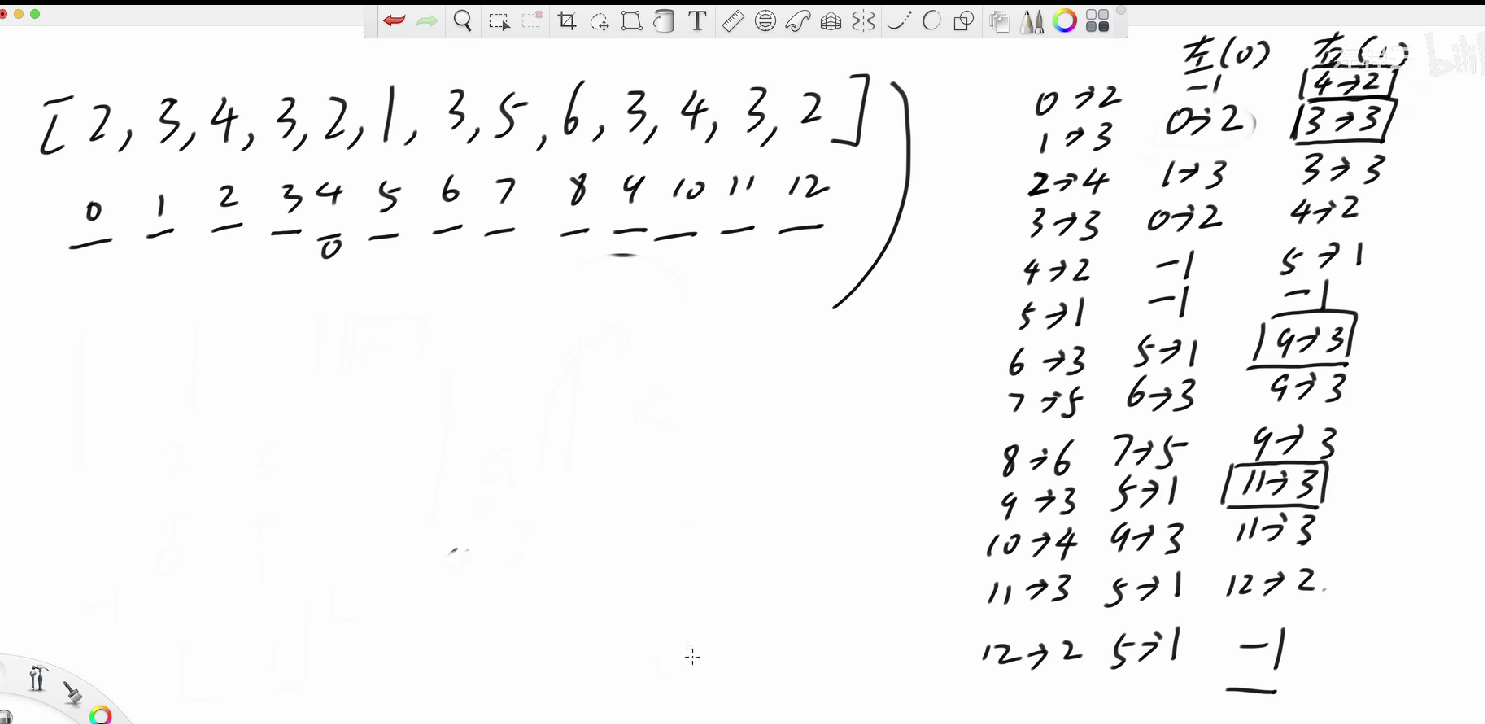 [2, 3, 4, 3, 2, 1, 3, 5, 6, 3, 4, 3, 2]
0 1 2 3 4 5 6 7 8 9 10 11 12
0
左(0) 右(1)
0→2 -1 4→2
1→3 0→2 3→3
2→4 1→3 3→3
3→3 0→2 4→2
4→2 -1 5→1
5→1 -1 -1
6→3 5→1 9→3
7→5 6→3 9→3
8→6 7→5 9→3
9→3 5→1 11→3
10→4 9→3 11→3
11→3 5→1 12→2
12→2 5→1 -1